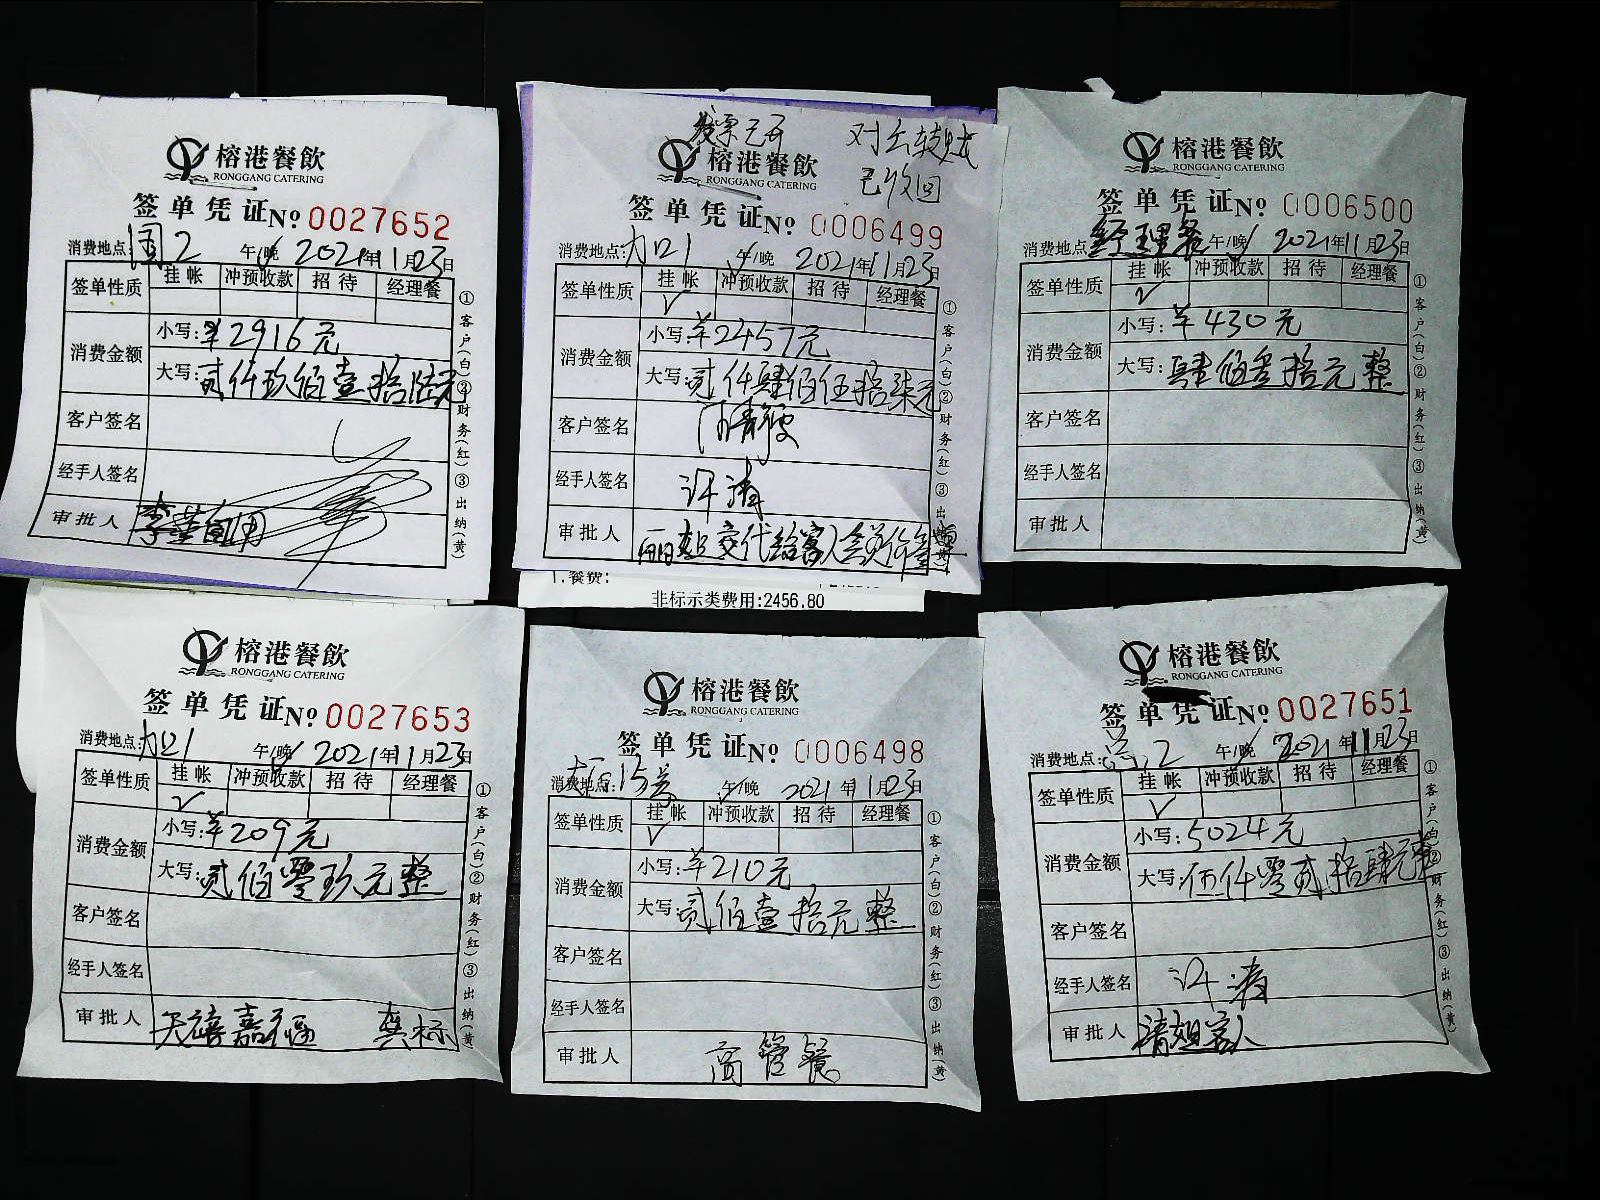 榕港餐飲
RONGGANG CATERING
签单凭证 No 0027652
消费地点: 国2 午/晚 2021年11月23日
签单性质 挂帐 冲预收款 招待 经理餐
消费金额
小写: ¥2916元
大写: 贰仟玖佰壹拾陆元
客户签名
经手人签名
审批人
①客户(白)②财务(红)③出纳(黄)
发票已开 对公转账
已收回
榕港餐飲
RONGGANG CATERING
签单凭证 No 0006499
消费地点: 加口1 午/晚 2021年11月23日
签单性质 挂帐 冲预收款 招待 经理餐
消费金额
小写: ¥2457元
大写: 贰仟肆佰伍拾柒元
客户签名
经手人签名 许清
审批人 交代给客人会员价
①客户(白)②财务(红)③出纳(黄)
1.餐费:
非标示类费用:2456.80
榕港餐飲
RONGGANG CATERING
签单凭证 No 0006500
消费地点 经理餐 午/晚 2021年11月23日
签单性质 挂帐 冲预收款 招待 经理餐
消费金额
小写: ¥430元
大写: 肆佰叁拾元整
客户签名
经手人签名
审批人
①客户(白)②财务(红)③出纳(黄)
榕港餐飲
RONGGANG CATERING
签单凭证 No 0027653
消费地点: 加口1 午/晚 2021年11月23日
签单性质 挂帐 冲预收款 招待 经理餐
消费金额
小写: ¥209元
大写: 贰佰零玖元整
客户签名
经手人签名
审批人 天禧嘉福 龚标
①客户(白)②财务(红)③出纳(黄)
榕港餐飲
RONGGANG CATERING
签单凭证 No 0006498
消费地点: 午/晚 2021年11月23日
签单性质 挂帐 冲预收款 招待 经理餐
消费金额
小写: ¥210元
大写: 贰佰壹拾元整
客户签名
经手人签名
审批人 高管餐
①客户(白)②财务(红)③出纳(黄)
榕港餐飲
RONGGANG CATERING
签单凭证 No 0027651
消费地点: 2 午/晚 2021年11月23日
签单性质 挂帐 冲预收款 招待 经理餐
消费金额
小写: 5024元
大写: 伍仟零贰拾肆元整
客户签名
经手人签名 许清
审批人 清姐客人
①客户(白)②财务(红)③出纳(黄)